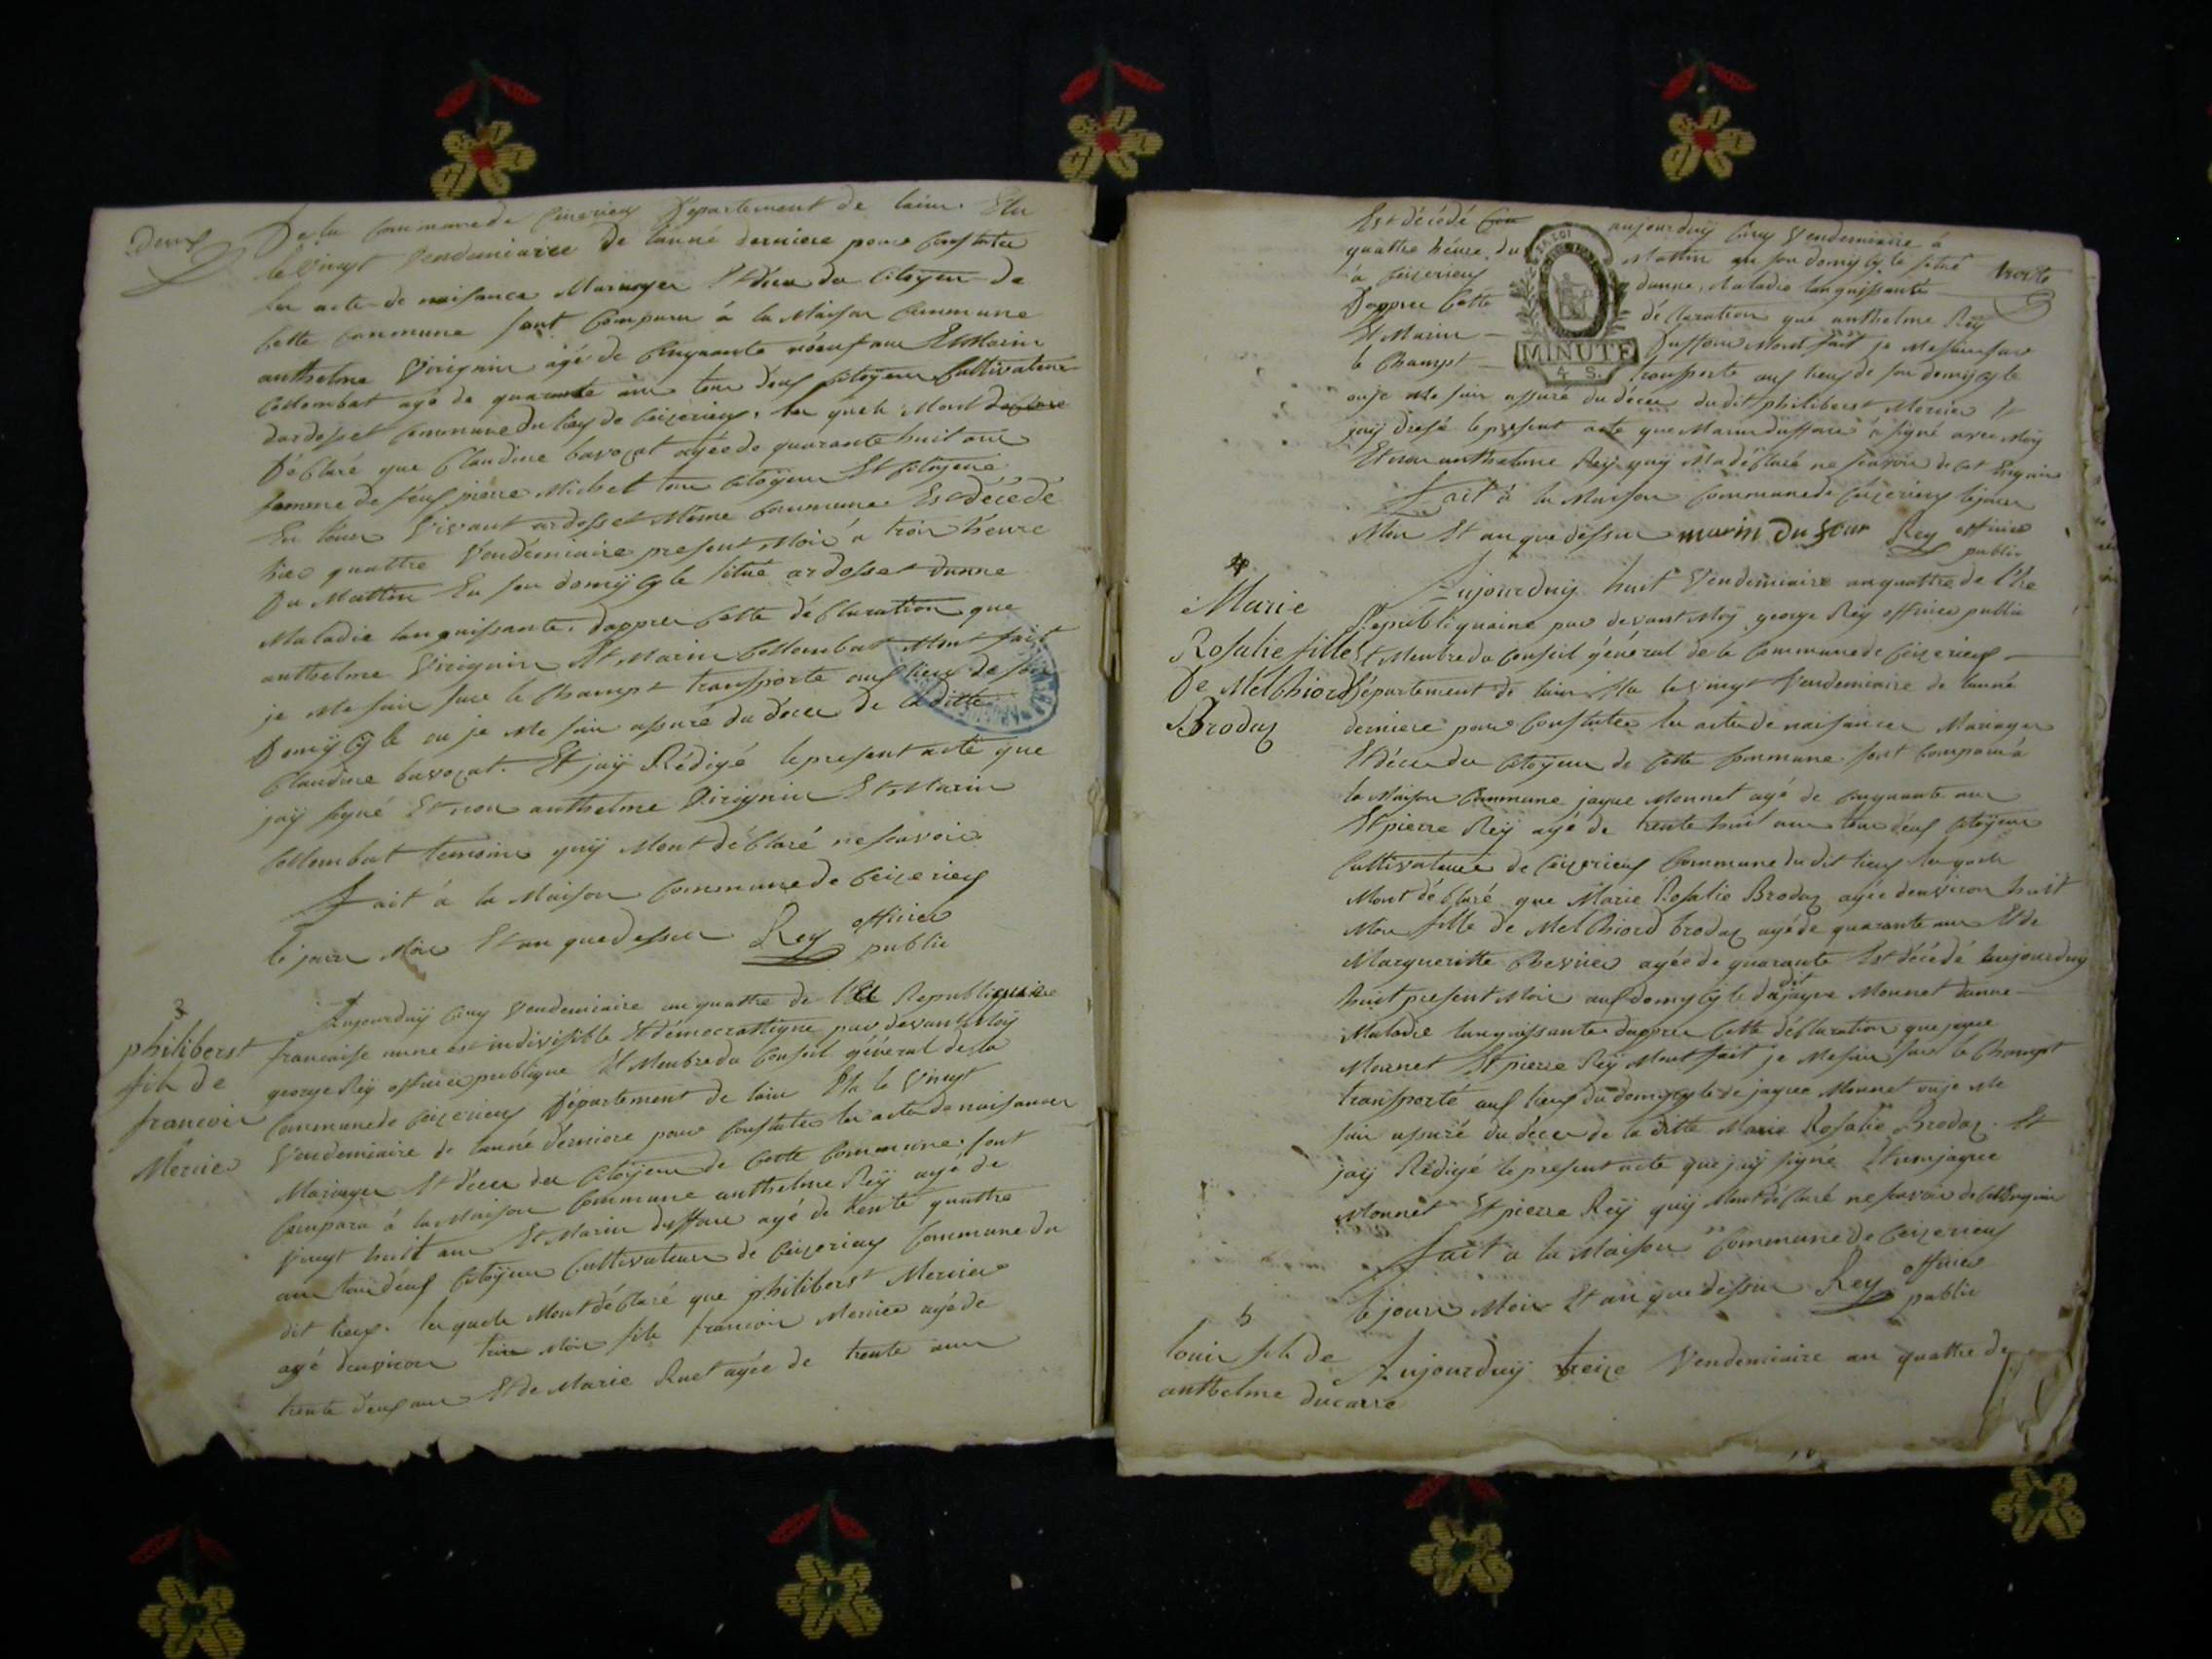 Deux
De la Commune de Ceizerieux Département de lain. Elu
le vingt Vendemiaire de lanné derniere pour Constater
les acte de naisances Mariages Et déces des Citoyens de
Cette Commune sont Comparu à la Maison Commune
anthelme Virignin agé de Cinquante néeuf ans Et Marin
Collombat agé de quarante ans tous deux Citoyens Cultivateurs
dardosset Commune du lay de Ceizerieux. les quels Mont déclaré
Déclaré que Claudine bavozat agée de quarante huit ans
femme de féeux pierre Michel tous Citoyens Et Citoyene
En leurs Vivant ardosset Même Commune Est décédé
hier quattre Vendémiaire present Mois à trois héure
Du Mattin En son domÿcÿle situé ardosset dunne
Maladie languissante. dapprès Cette déClaration que
anthelme Virignin Et Marin Collombat Mont fait
je Me suis sure le Champt transporté aux lieux de son
DomÿCÿle ou je Me suis assuré du déces de laditte
Claudine bavozat. Et jaÿ Rédigé le present acte que
jaÿ signé Et non anthelme Virignin Et Marin
Collombat temoins quÿ Mont déClaré ne savoir
Fait à la Maison Commune de Ceizerieux
le jour Mois Et an que dessus Rey officier
public
3
philiberst
fils de
francois
Mercier
Aujourduÿ Cinq Vendemiaire an quattre de lEre Republiquaine
francaise unne est indivisible Et démocrattique par devant Moÿ
george Reÿ officier publique Et Menbre du Conseil général de la
Commune de Ceizerieux Département de lain Elu le Vingt
Vendemiaire de lanné derniere pour Constater les acte de naisances
Mariages Et déces des Citoÿens de Cette Commune. sont
Comparu à la Maison Commune anthelme Reÿ agé de
Vingt huit ans Et Marin duffour agé de trente quattre
ans tous deux Citoÿens Cultivateurs de Ceizerieux Commune du
dit lieux. les quels Mont déClaré que philiberst Mercier
agé denviron trois Mois fils francois Mercier agé de
trente deux ans Et de Marie Ruet agée de trente ans
Est décédé Cin aujourduÿ Cinq Vendemiaire à
quattre héure du Mattin au son domÿcÿle situé troite
à Ceizerieux dunne Maladie languissante
Dapprès Cette déClaration que anthelme Reÿ
Et Marin Duffour Mont fait je Me suis sur
le Champt transporté aux lieux de son domÿcÿle
MINUTE
4 S.
ou je Me suis assuré du déces du dit philiberst Mercier Et
jaÿ dresé le présent acte que Marin duffour à signé avec Moÿ
Et non anthelme Reÿ quÿ Ma déClaré ne savoir de cet Enquis
Fait à la Maison Commune de Ceizerieux le jour
Mois Et an que dessus marin Dufour Rey officier
public
4
Marie
Rosalie fille
De MelChiord
Brodaz
Aujourduiy huit Vendemiaire an quattre de lEre
Républiquaine par devant Moÿ george Reÿ officier public
Et Menbre du Conseil général de la Commune de Ceizerieux
Département de lain Elu le vingt Vendemiaire de lanné
derniere pour Constater les acte de naisances Mariages
Et déces des Citoyens de Cette Commune sont Comparu à
la Maison Commune jaque Monnet agé de Cinquante ans
Et pierre Reÿ agé de trente huit ans tous deux Citoyens
Cultivateurs de Ceizerieux Commune du dit lieux les quels
Mont déClaré que Marie Rosalie Brodaz agée denviron huit
Mois fille de MelChiord brodaz agé de quarante ans Et de
Margueritte Chevrier agée de quarante Est décédé aujourduy
huit present Mois aux domyCyle du dit jaque Monnet dunne
Maladie languissante dapprès Cette déClaration que jaque
Monnet Et pierre Reÿ Mont fait je Me suis sur le Champt
transporté aux lieux du domyCyle de jaque Monnet ou je Me
suis assuré du déces de la ditte Marie Rosalie Brodaz. Et
jaÿ Rédigé le present acte que jaÿ signé Et non jaque
Monnet Et pierre Reÿ quÿ Mont déClaré ne savoir de cet Enquis
Fait à la Maison Commune de Ceizerieux
le jour Mois Et an que dessus Rey officier
public
5
louis fils de
anthelme ducarre
Aujourduiy treize Vendemiaire an quattre de